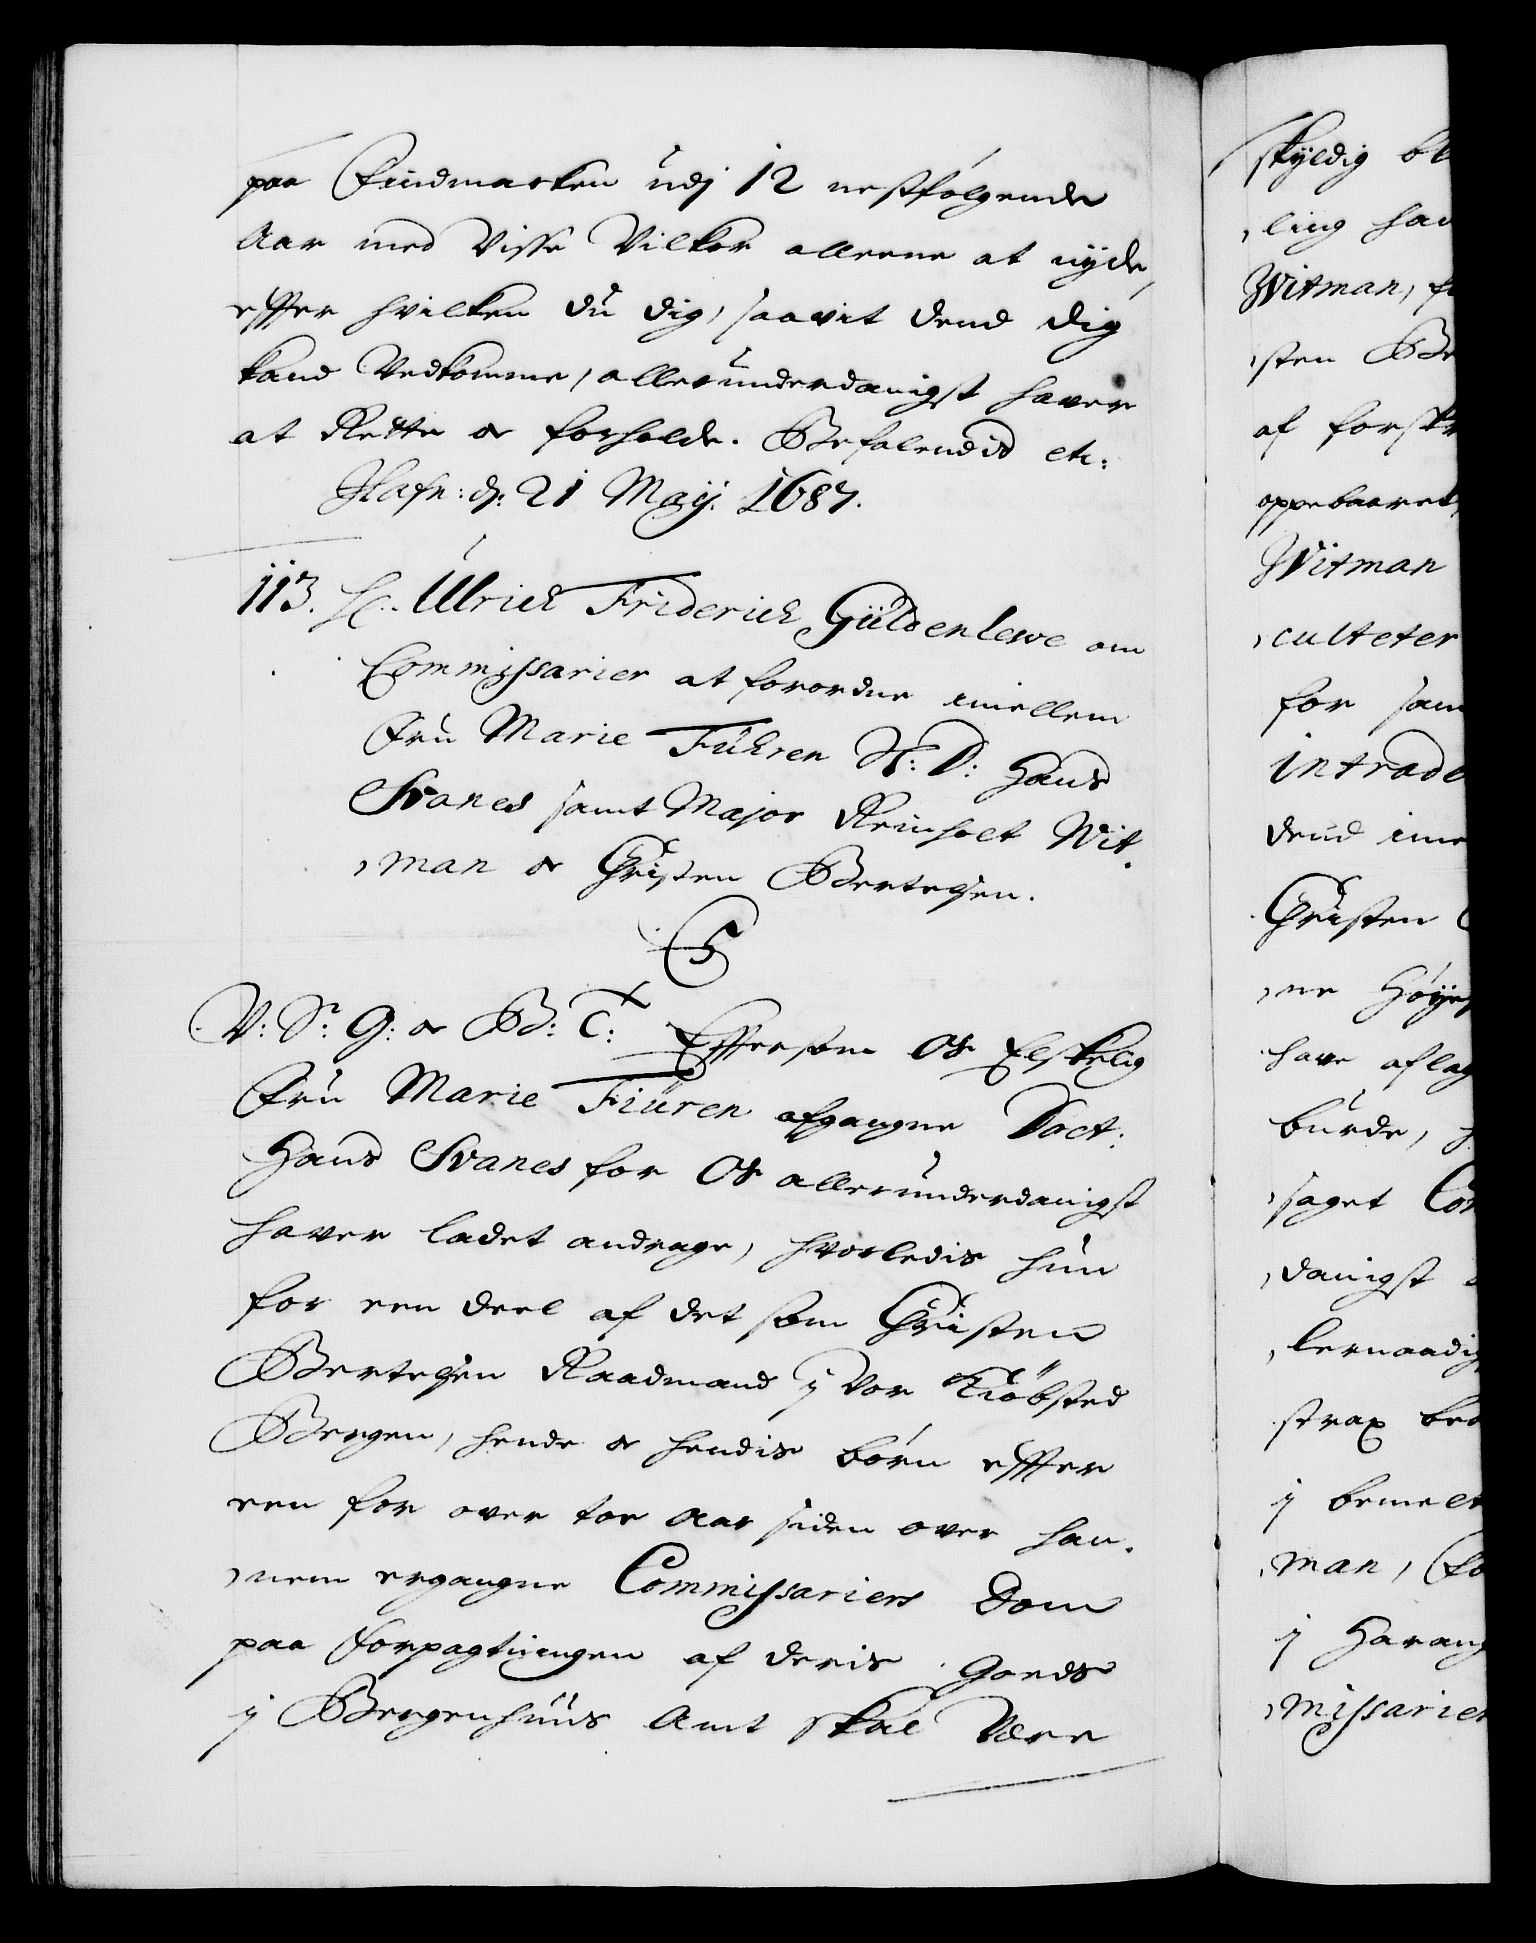 paa Findmarken udj 12 nestfølgende
Aar med Visse Vilkor alleene at nyde,
effter hvilken du dig, saavit dend dig
kand Vedkomme, allerunderdanigst haver
at Rette og forholde. Befalendis etc:
Hafn: d: 21 Maij. 1687.
113. H: Ulrich Friderich Güldenlewe om
Commissarier at forordne imellem
Fru Marie Führen S: D: Hans
Svanes samt Major Reinholt Wit-
,man og Christen Bertelsen.
C5
V: Sr: G: og B: T: Efftersom Os Elskelig
Fru Marie Fiüren afgangne Doct:
Hans Svanes for Os allerunderdanigst
haver ladet andrage, hvorledis hun
for een deel af det som Christen
Bertelsen Raadmand j Vor Kiöbsted
Bergen, hende og hendis børn effter
een for over toe Aar siden over han-
,nem ergangne Commissariers Dom
paa Forpagtningen af deris Gods
j Bergenhuus Amt skal Være
skyldig bl
,ling han
Witman, f
,sten Be
af forskr
oppebaaret,
Witman
,culteter
for sam
intrade
dend ime
Christen
,ne Høyes
have aflag
burde,
,saget Com
,danigst
,lernaadig
strax be
j bemelt
,man, Fo
j Harang
,missarier